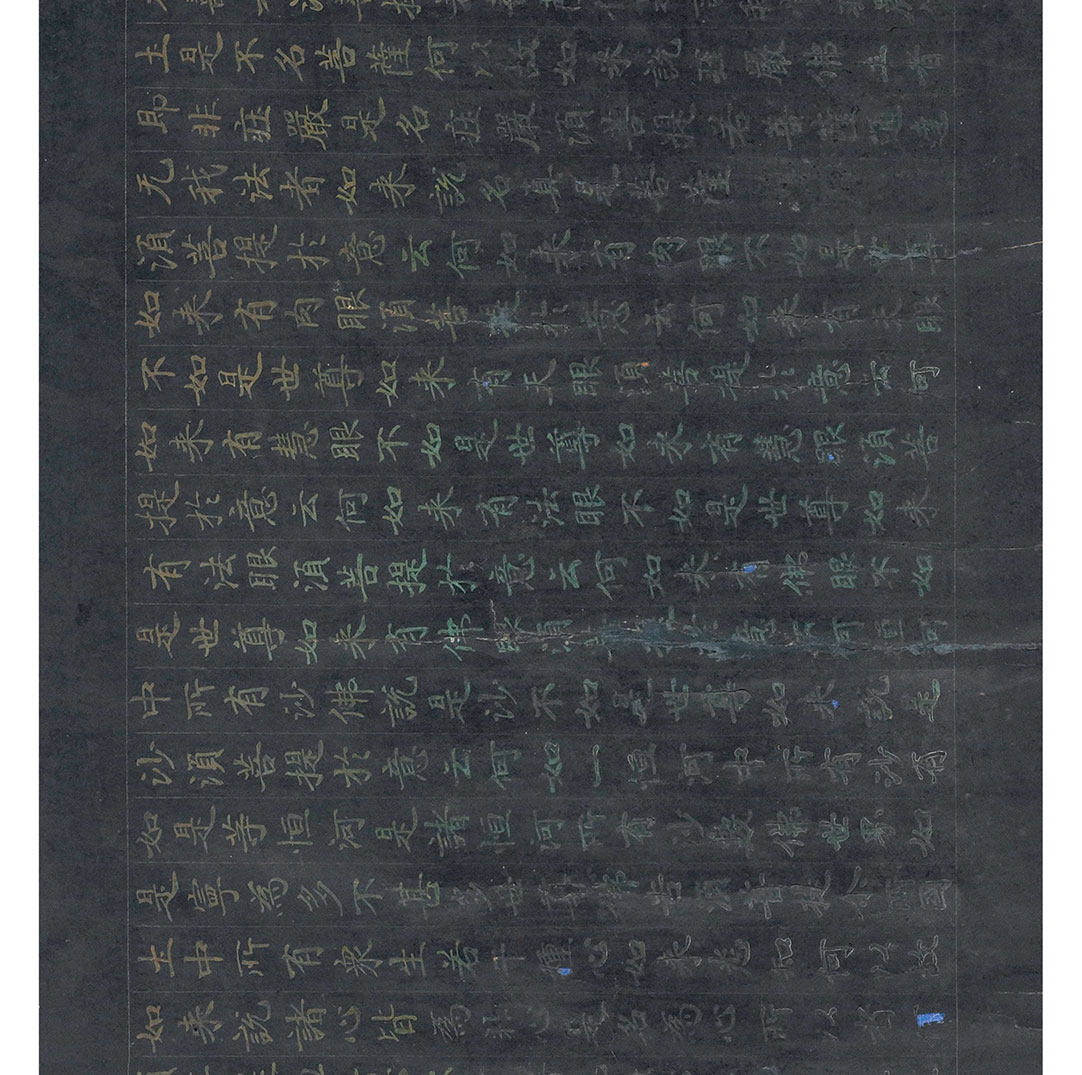 土是不名菩薩何以故如来說莊嚴佛土者
即非莊嚴是名莊嚴須菩提若菩薩通達
无我法者如来說名真是菩薩
須菩提於意云何如来有肉眼不如是世尊
如来有肉眼須菩提於意云何如来有天眼
不如是世尊如来有天眼須菩提於意云何
如来有慧眼不如是世尊如来有慧眼須菩
提於意云何如来有法眼不如是世尊如来
有法眼須菩提於意云何如来有佛眼不如
是世尊如来有佛眼須菩提於意云何恒河
中所有沙佛說是沙不如是世尊如来說是
沙須菩提於意云何如一恒河中所有沙有
如是等恒河是諸恒河所有沙數佛世界如
是寧為多不甚多世尊佛告須菩提尒所國
土中所有衆生若干種心如来悉知何以故
如来說諸心皆為非心是名為心所以者